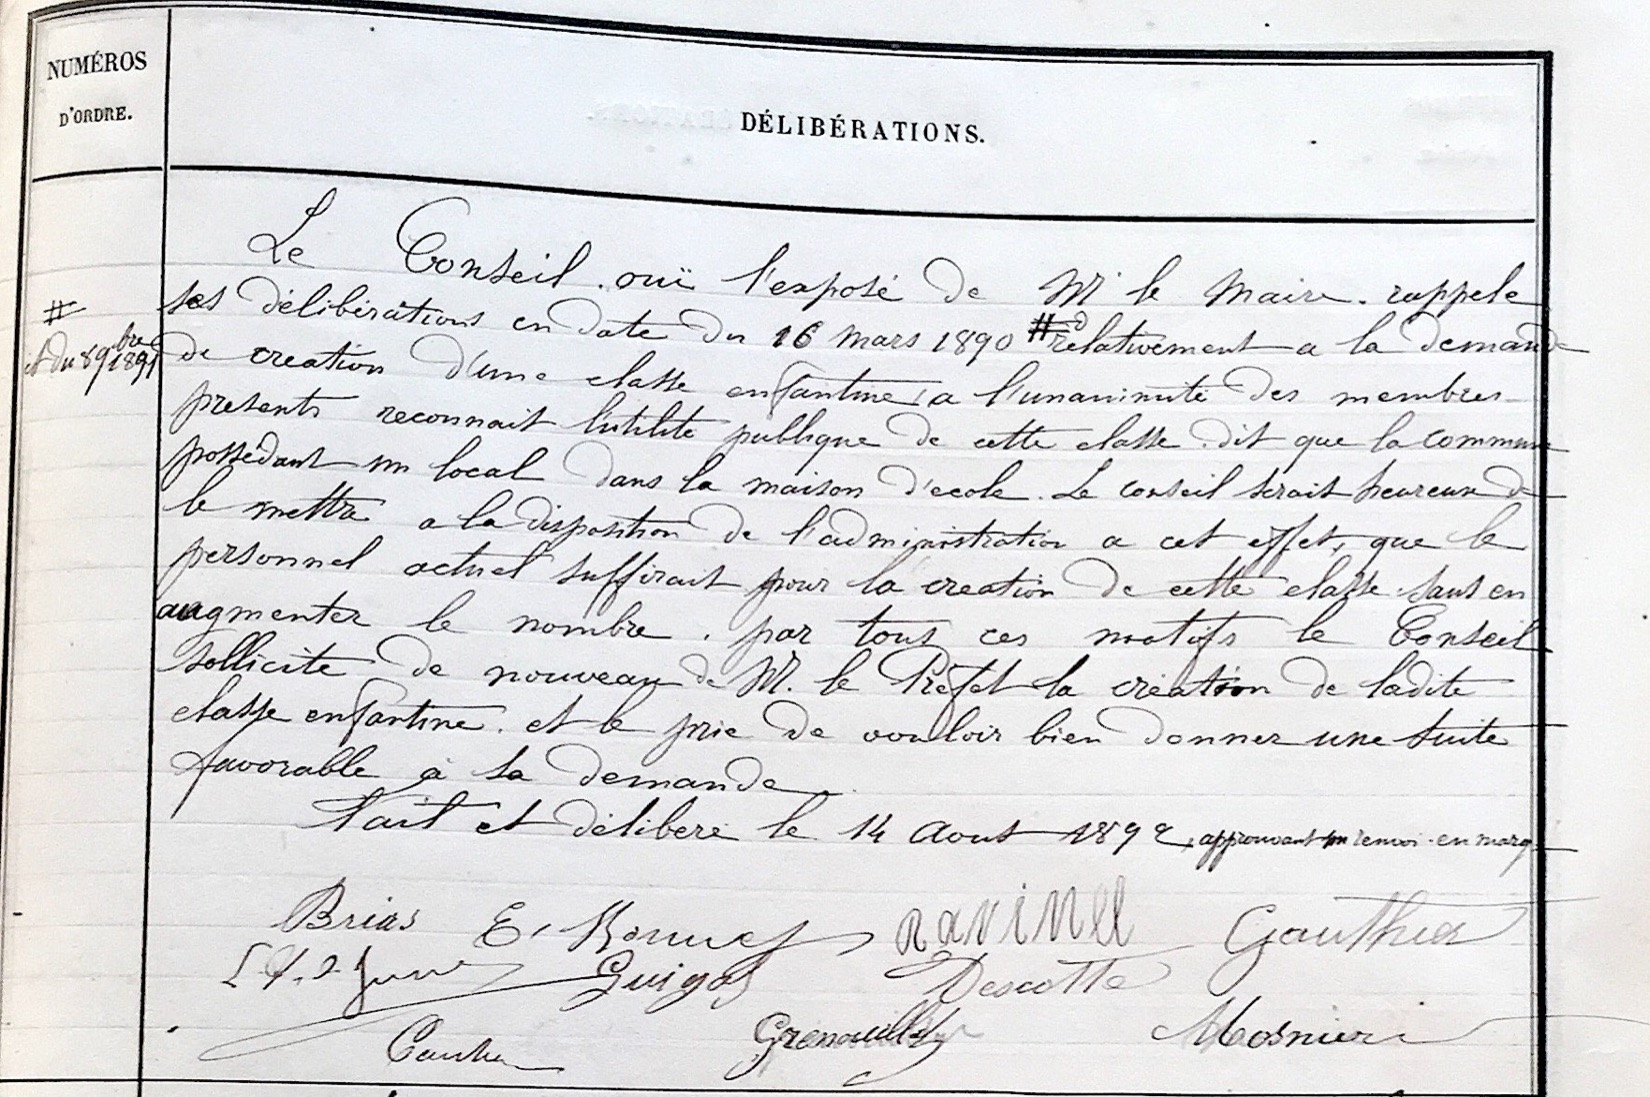 NUMÉROS
D'ORDRE.
DÉLIBÉRATIONS.
Le Conseil. ouï l'exposé de Mr le Maire. rappele
ses délibérations en date du 16 mars 1890 # relativement a la demande
#
et du 8 9bre 1891
de creation d'une classe enfantine, a l'unanimité des membres
presents reconnait l'utilité publique de cette classe. dit que la commune
possedant un local dans la maison d'ecole. Le conseil serait heureux de
le mettre a la disposition de l'administration a cet effet, que le
personnel actuel suffirait pour la creation de cette classe sans en
augmenter le nombre. par tous ces motifs le Conseil
sollicite de nouveau de M. le Préfet la création de ladite
classe enfantine. et le prie de vouloir bien donner une suite
favorable à sa demande
Fait et délibéré le 14 Aout 1892, approuvant un renvoi en marge
Brias E. Ravinel Gauthier
Guigal Descotte
Grenouillet Mosnier